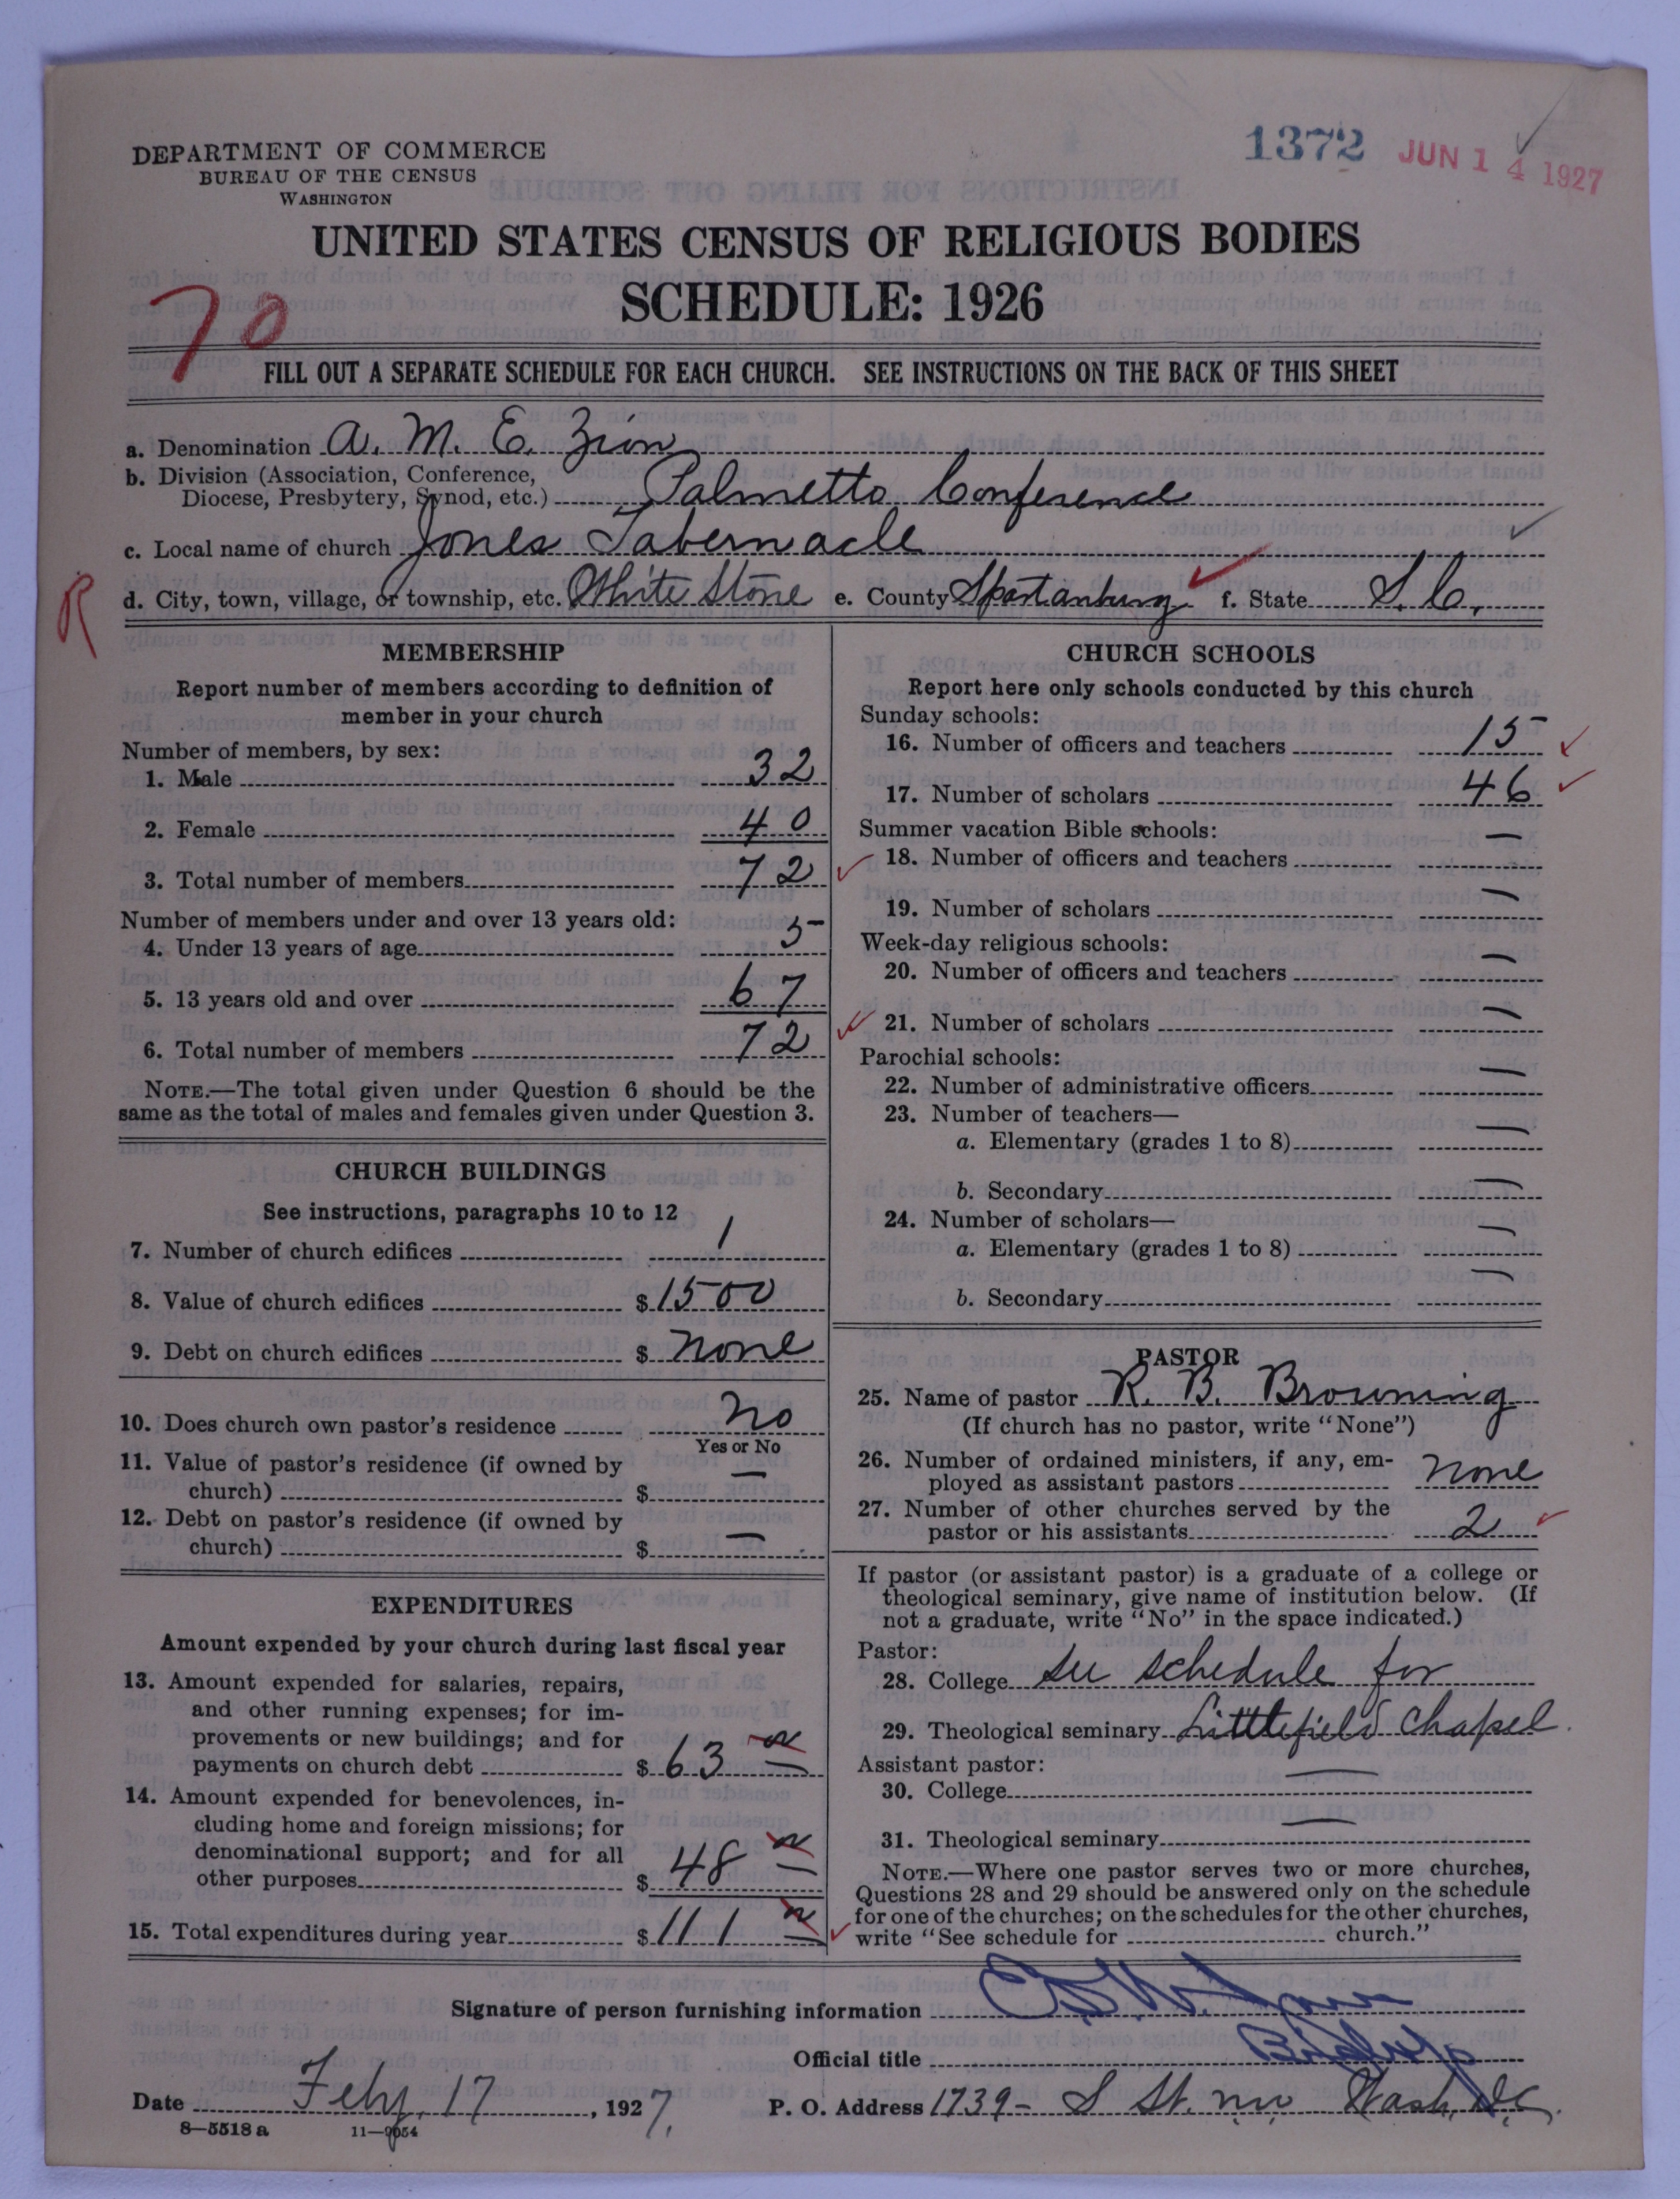 1372 JUN 14 1927
DEPARTMENT OF COMMERCE
BUREAU OF THE CENSUS
WASHINGTON
UNITED STATES CENSUS OF RELIGIOUS BODIES
SCHEDULE: 1926
70
FILL OUT A SEPARATE SCHEDULE FOR EACH CHURCH. SEE INSTRUCTIONS ON THE BACK OF THIS SHEET
a. Denomination A. M. E. Zion
b. Division (Association, Conference,
Diocese, Presbytery, Synod, etc.) Palmetto Conference
c. Local name of church Jones Tabernacle
R
d. City, town, village, or township, etc. White Stone e. County Spartanburg f. State S. C.
MEMBERSHIP
Report number of members according to definition of
member in your church
Number of members, by sex:
1. Male 32
2. Female 40
3. Total number of members 72
Number of members under and over 13 years old:
4. Under 13 years of age 5
5. 13 years old and over 67
6. Total number of members 72
NOTE.—The total given under Question 6 should be the
same as the total of males and females given under Question 3.
CHURCH BUILDINGS
See instructions, paragraphs 10 to 12
7. Number of church edifices 1
8. Value of church edifices $ 1500
9. Debt on church edifices $ none
10. Does church own pastor's residence no
Yes or No
11. Value of pastor's residence (if owned by
church) $ —
12. Debt on pastor's residence (if owned by
church) $ —
EXPENDITURES
Amount expended by your church during last fiscal year
13. Amount expended for salaries, repairs,
and other running expenses; for im-
provements or new buildings; and for
payments on church debt $ 63
14. Amount expended for benevolences, in-
cluding home and foreign missions; for
denominational support; and for all
other purposes $ 48
15. Total expenditures during year $ 111
CHURCH SCHOOLS
Report here only schools conducted by this church
Sunday schools:
16. Number of officers and teachers 15
17. Number of scholars 46
Summer vacation Bible schools:
18. Number of officers and teachers —
19. Number of scholars —
Week-day religious schools:
20. Number of officers and teachers —
21. Number of scholars —
Parochial schools:
22. Number of administrative officers —
23. Number of teachers—
a. Elementary (grades 1 to 8) —
b. Secondary —
24. Number of scholars—
a. Elementary (grades 1 to 8) —
b. Secondary —
PASTOR
25. Name of pastor R. B. Browning
(If church has no pastor, write "None")
26. Number of ordained ministers, if any, em-
ployed as assistant pastors none
27. Number of other churches served by the
pastor or his assistants 2
If pastor (or assistant pastor) is a graduate of a college or
theological seminary, give name of institution below. (If
not a graduate, write "No" in the space indicated.)
Pastor:
28. College See schedule for
29. Theological seminary Litttlefield Chapel.
Assistant pastor:
30. College —
31. Theological seminary —
NOTE.—Where one pastor serves two or more churches,
Questions 28 and 29 should be answered only on the schedule
for one of the churches; on the schedules for the other churches,
write "See schedule for church."
Signature of person furnishing information
Official title Bishop
Date Feby. 17, 1927. P. O. Address 1739- S St. nw Wash, D.C.
8—5518 a 11—9054